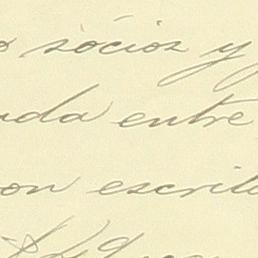 o socios y
da entre
on escrito